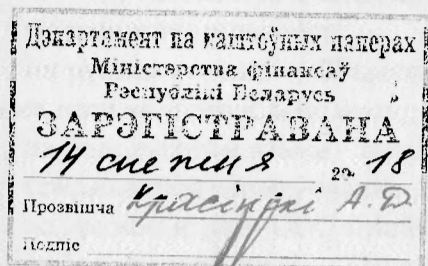 Дэпартамент па каштоўных паперах
Міністэрства фінансаў
Рэспублікі Беларусь
ЗАРЭГІСТРАВАНА
14 снежня 20 18
Прозвішча Красінскі А.Д.
Подпіс